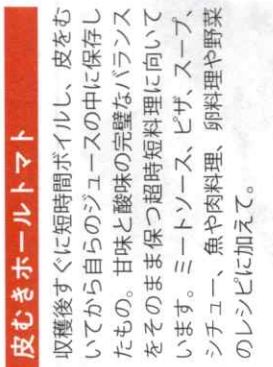 皮むきホールトマト
収穫後すぐに短時間ボイルし、皮をむ
いてから自らのジュースの中に保存し
たもの。甘味と酸味の完璧なバランス
をそのまま保つ超時短料理に向いて
います。ミートソース、ピザ、スープ、
シチュー、魚や肉料理、卵料理や野菜
のレシピに加えて。